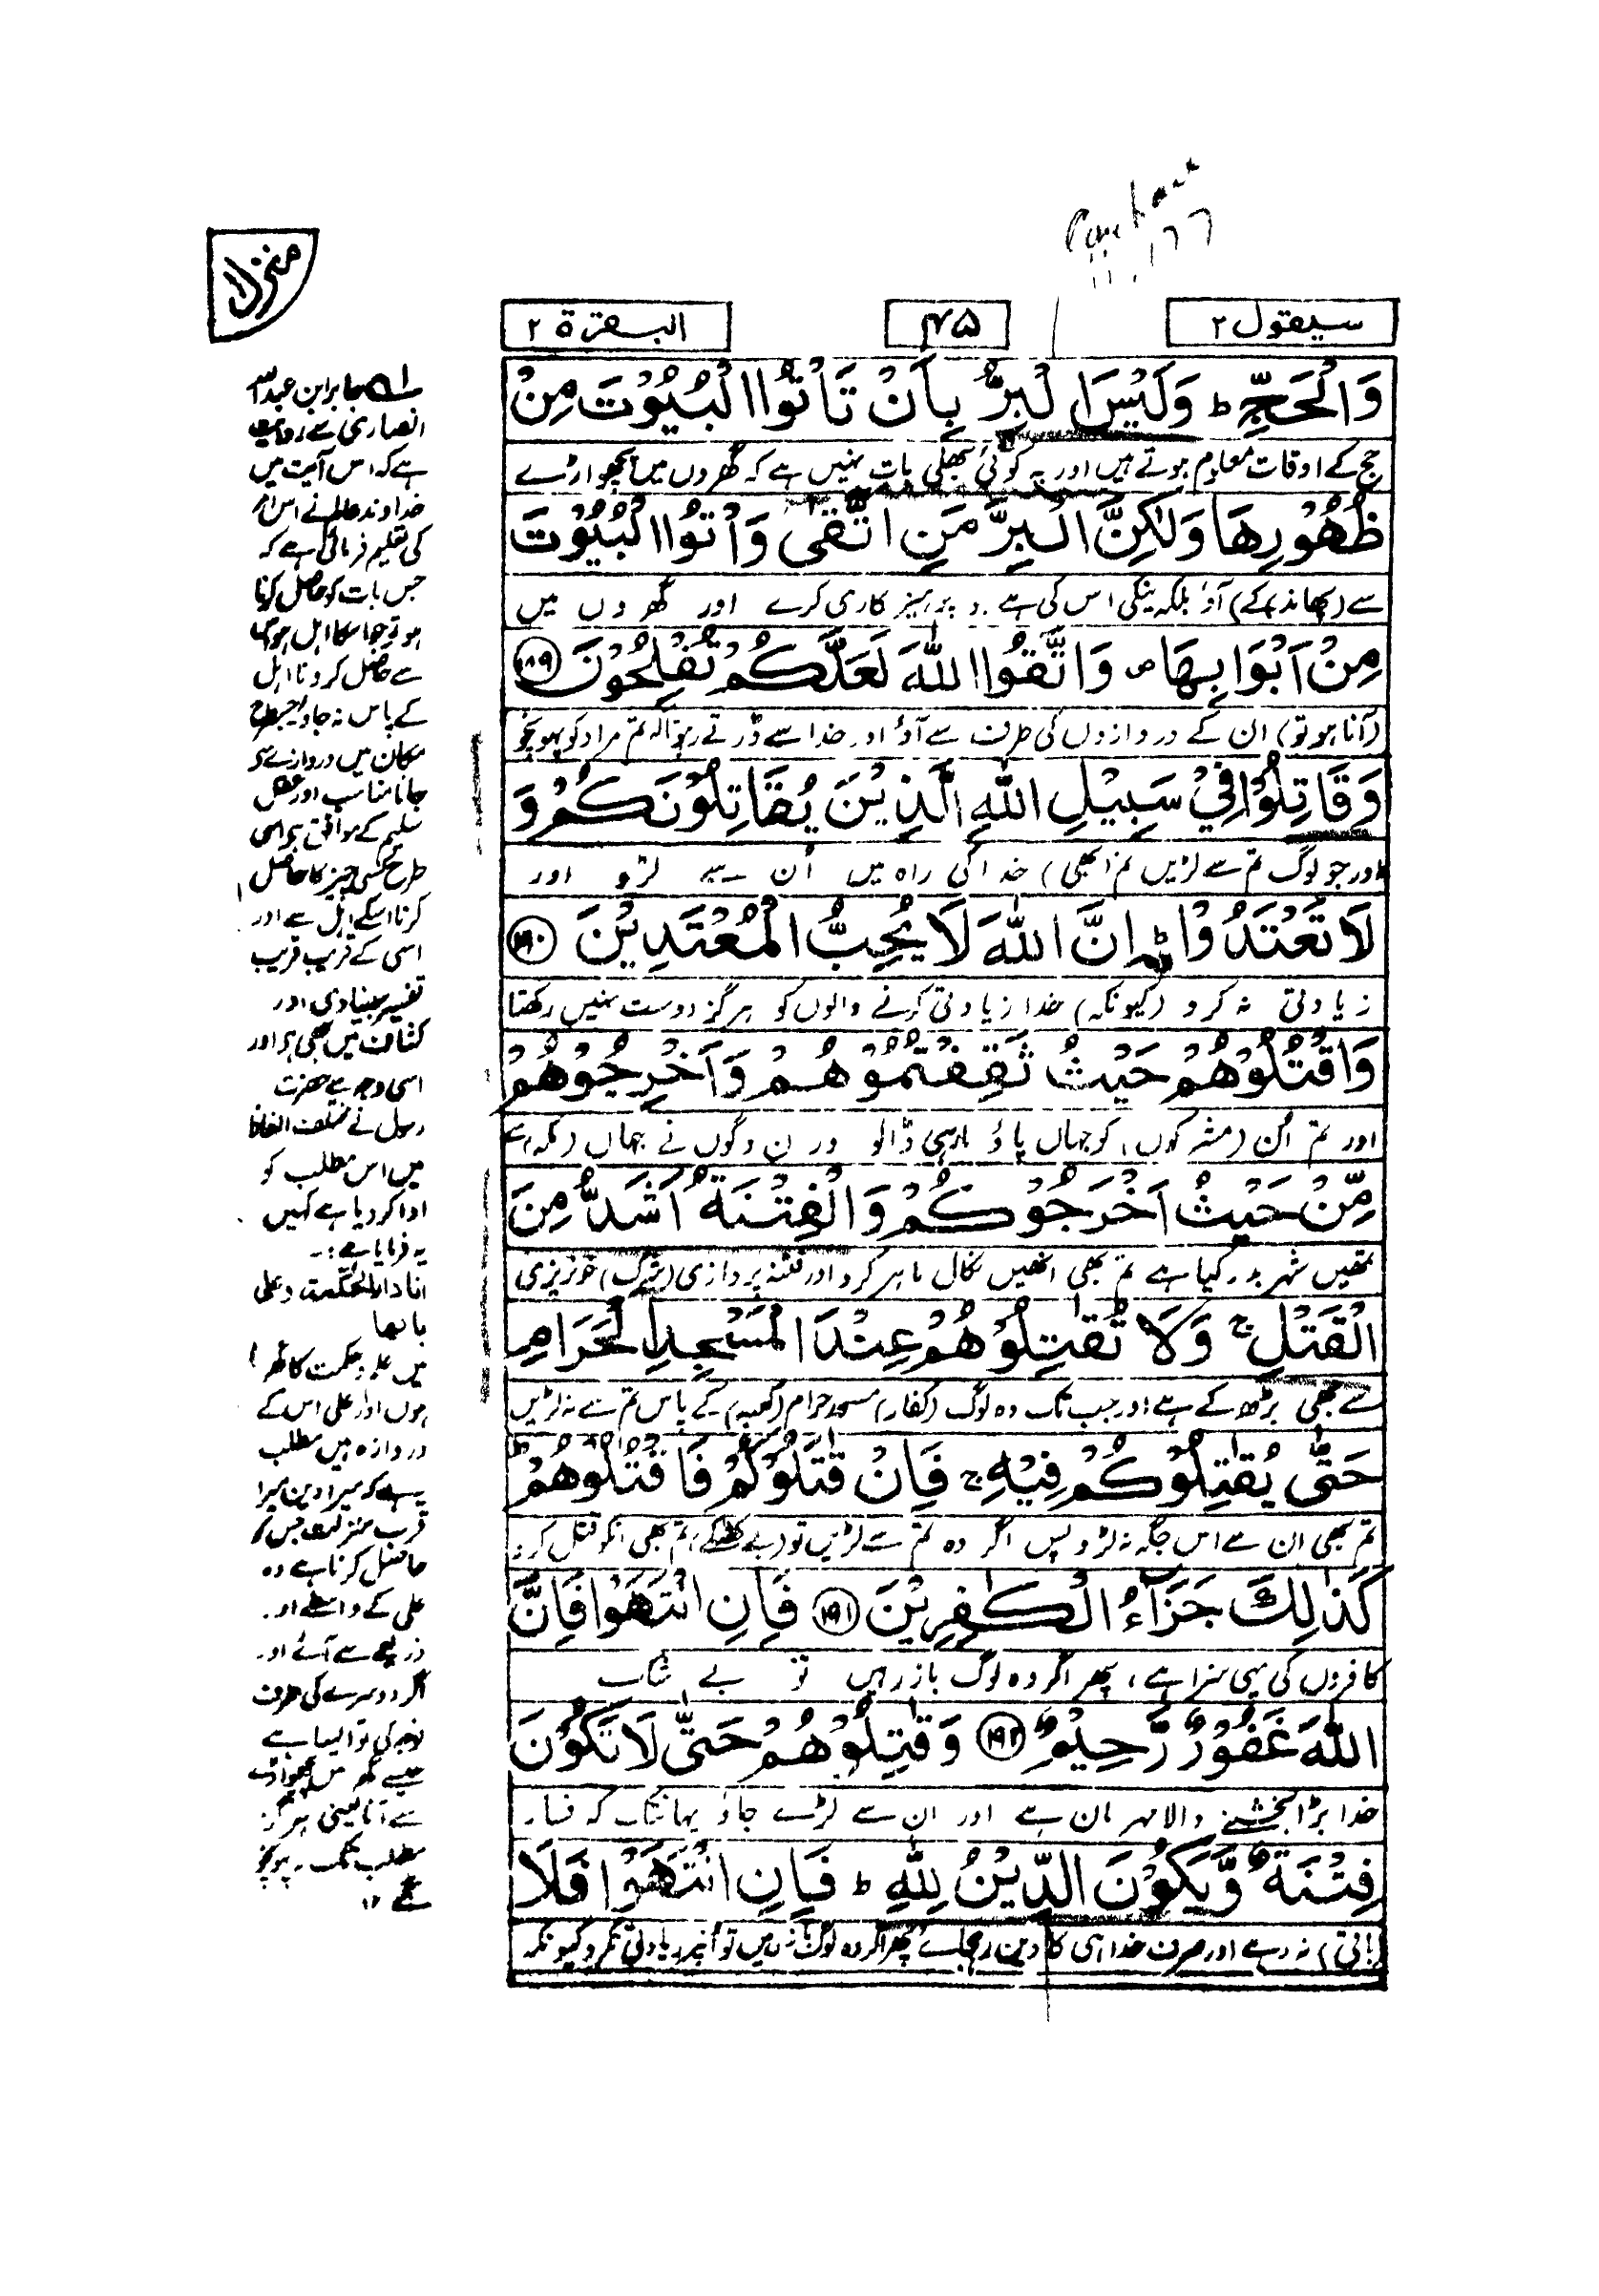 منزل ۱
سیقول ۲
۴۵
البقرة ۲
وَالْحَجِّ ؕ وَلَيْسَ الْبِرُّ بِاَنْ تَاْتُوا الْبُيُوْتَ مِنْ
حج کے اوقات معلوم ہوتے ہیں اور یہ کوئی بھلی بات نہیں ہے کہ گھروں میں پچھواڑے
ظُهُوْرِهَا وَلٰكِنَّ الْبِرَّ مَنِ اتَّقٰى وَاْتُوا الْبُيُوْتَ
سے (پھاند کے) آؤ بلکہ نیکی اس کی ہے جو پرہیز کاری کرے اور گھروں میں
مِنْ اَبْوَابِهَا ۪ وَاتَّقُوا اللّٰهَ لَعَلَّكُمْ تُفْلِحُوْنَ ﴿۱۸۹﴾
(آنا ہو تو) ان کے دروازوں کی طرف سے آؤ اور خدا سے ڈرتے رہو تاکہ تم مراد کو پہونچو
وَقَاتِلُوْا فِيْ سَبِيْلِ اللّٰهِ الَّذِيْنَ يُقَاتِلُوْنَكُمْ وَ
اور جو لوگ تم سے لڑیں تم (بھی) خدا کی راہ میں اُن سے لڑو اور
لَا تَعْتَدُوْا ؕ اِنَّ اللّٰهَ لَا يُحِبُّ الْمُعْتَدِيْنَ ﴿۱۹۰﴾
زیادتی نہ کرو (کیونکہ) خدا زیادتی کرنے والوں کو ہرگز دوست نہیں رکھتا
وَاقْتُلُوْهُمْ حَيْثُ ثَقِفْتُمُوْهُمْ وَاَخْرِجُوْهُمْ
اور تم اُن (مشرکوں) کو جہاں پاؤ مار ہی ڈالو اور ان لوگوں نے جہاں (مکہ) سے
مِّنْ حَيْثُ اَخْرَجُوْكُمْ وَالْفِتْنَةُ اَشَدُّ مِنَ
تمھیں شہر بدر کیا ہے تم بھی انھیں نکال باہر کرو اور فتنہ پردازی (شرک) خونریزی
الْقَتْلِ ۚ وَلَا تُقٰتِلُوْهُمْ عِنْدَ الْمَسْجِدِ الْحَرَامِ
سے بھی بڑھ کے ہے اور جب تک وہ لوگ (کفار) مسجد حرام (کعبہ) کے پاس تم سے نہ لڑیں
حَتّٰى يُقٰتِلُوْكُمْ فِيْهِ ۚ فَاِنْ قٰتَلُوْكُمْ فَاقْتُلُوْهُمْ ؕ
تم بھی ان سے اس جگہ نہ لڑو پس اگر وہ تم سے لڑیں تو (بے کھٹکے) تم بھی انکو قتل کرو
كَذٰلِكَ جَزَآءُ الْكٰفِرِيْنَ ﴿۱۹۱﴾ فَاِنِ انْتَهَوْا فَاِنَّ
کافروں کی یہی سزا ہے، پھر اگر وہ لوگ باز رہیں تو بے شک
اللّٰهَ غَفُوْرٌ رَّحِيْمٌ ﴿۱۹۲﴾ وَقٰتِلُوْهُمْ حَتّٰى لَا تَكُوْنَ
خدا بڑا بخشنے والا مہربان ہے اور ان سے لڑے جاؤ یہانتک کہ فساد
فِتْنَةٌ وَّيَكُوْنَ الدِّيْنُ لِلّٰهِ ؕ فَاِنِ انْتَهَوْا فَلَا
(باقی) نہ رہے اور صرف خدا ہی کا دین رہ جائے پھر اگر وہ لوگ باز رہیں تو انپر زیادتی نکرو کیونکہ
جابر ابن عبداللہ
انصاری سے روایت
ہے کہ اس آیت میں
خداوند عالم نے اس امر
کی تعلیم فرمائی ہے کہ
جس بات کو حاصل کرنا
ہو تو جو اسکا اہل ہو اس
سے حاصل کرو نا اہل
کے پاس نہ جاؤ جس طرح
مکان میں دروازے سے
جانا مناسب اور عقل
سلیم کے موافق ہے اسی
طرح کسی چیز کا حاصل
کرنا اسکے اہل سے اور
اسی کے قریب قریب
تفسیر بیضاوی اور
کشاف میں بھی ہے اور
اسی وجہ سے حضرت
رسول نے مختلف الفاظ
میں اس مطلب کو
ادا کر دیا ہے کہیں
یہ فرمایا ہے :۔
انا دار الحکمۃ وعلی
بابها
میں علم و حکمت کا گھر
ہوں اور علی اس کے
دروازہ ہیں مطلب
یہ ہے کہ میرا دین میرا
قرب منزلت جس کو
حاصل کرنا ہے وہ
علی کے واسطے اور
ذریعے سے آئے اور
اگر دوسرے کی طرف
توجہ کی تو ایسا ہے
جیسے گھر میں پچھواڑے
سے آنا یعنی ہرگز
مطلب تک نہ پہونچو
گے ۱۲